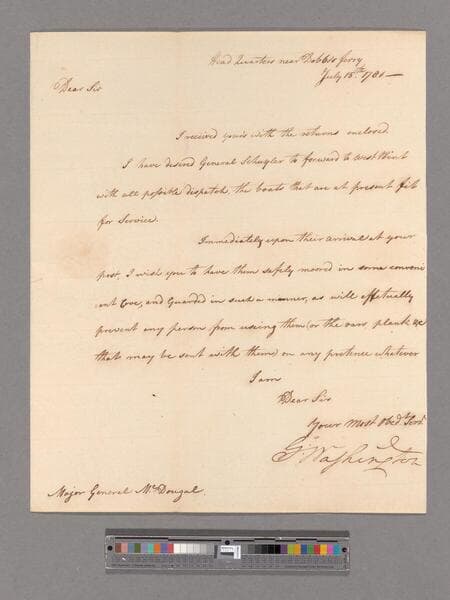 Head Quarters near Dobbs ferry
July 15th 1781 —
Dear Sir
I received yours with the returns enclosed.
I have desired General Schuyler to forward to West Point
with all possible dispatch, the boats that are at present fit
for Service.
Immediately upon their arrival at your
post, I wish you to have them safely moord in some conveni
ent Cove, and Guarded in such a manner, as will effectually
prevent any person from useing them (or the oars, plank &c
that may be sent with them) on any pretence whatever
I am
Dear Sir
Your Most Obedt Servt
Go Washington
Major General McDougal.